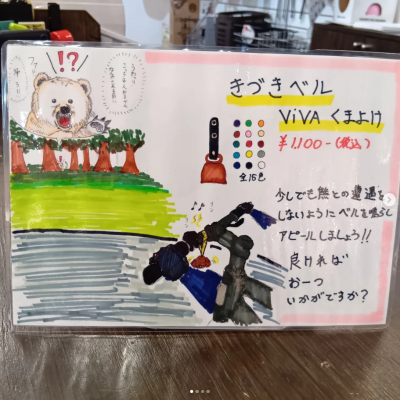 !?
きづきベル
ViVA くまよけ
¥1,100-(税込)
全15色
少しでも熊との遭遇を
しないようにベルを鳴らし
アピールしましょう!!
良ければ
お一つ
いかがですか?